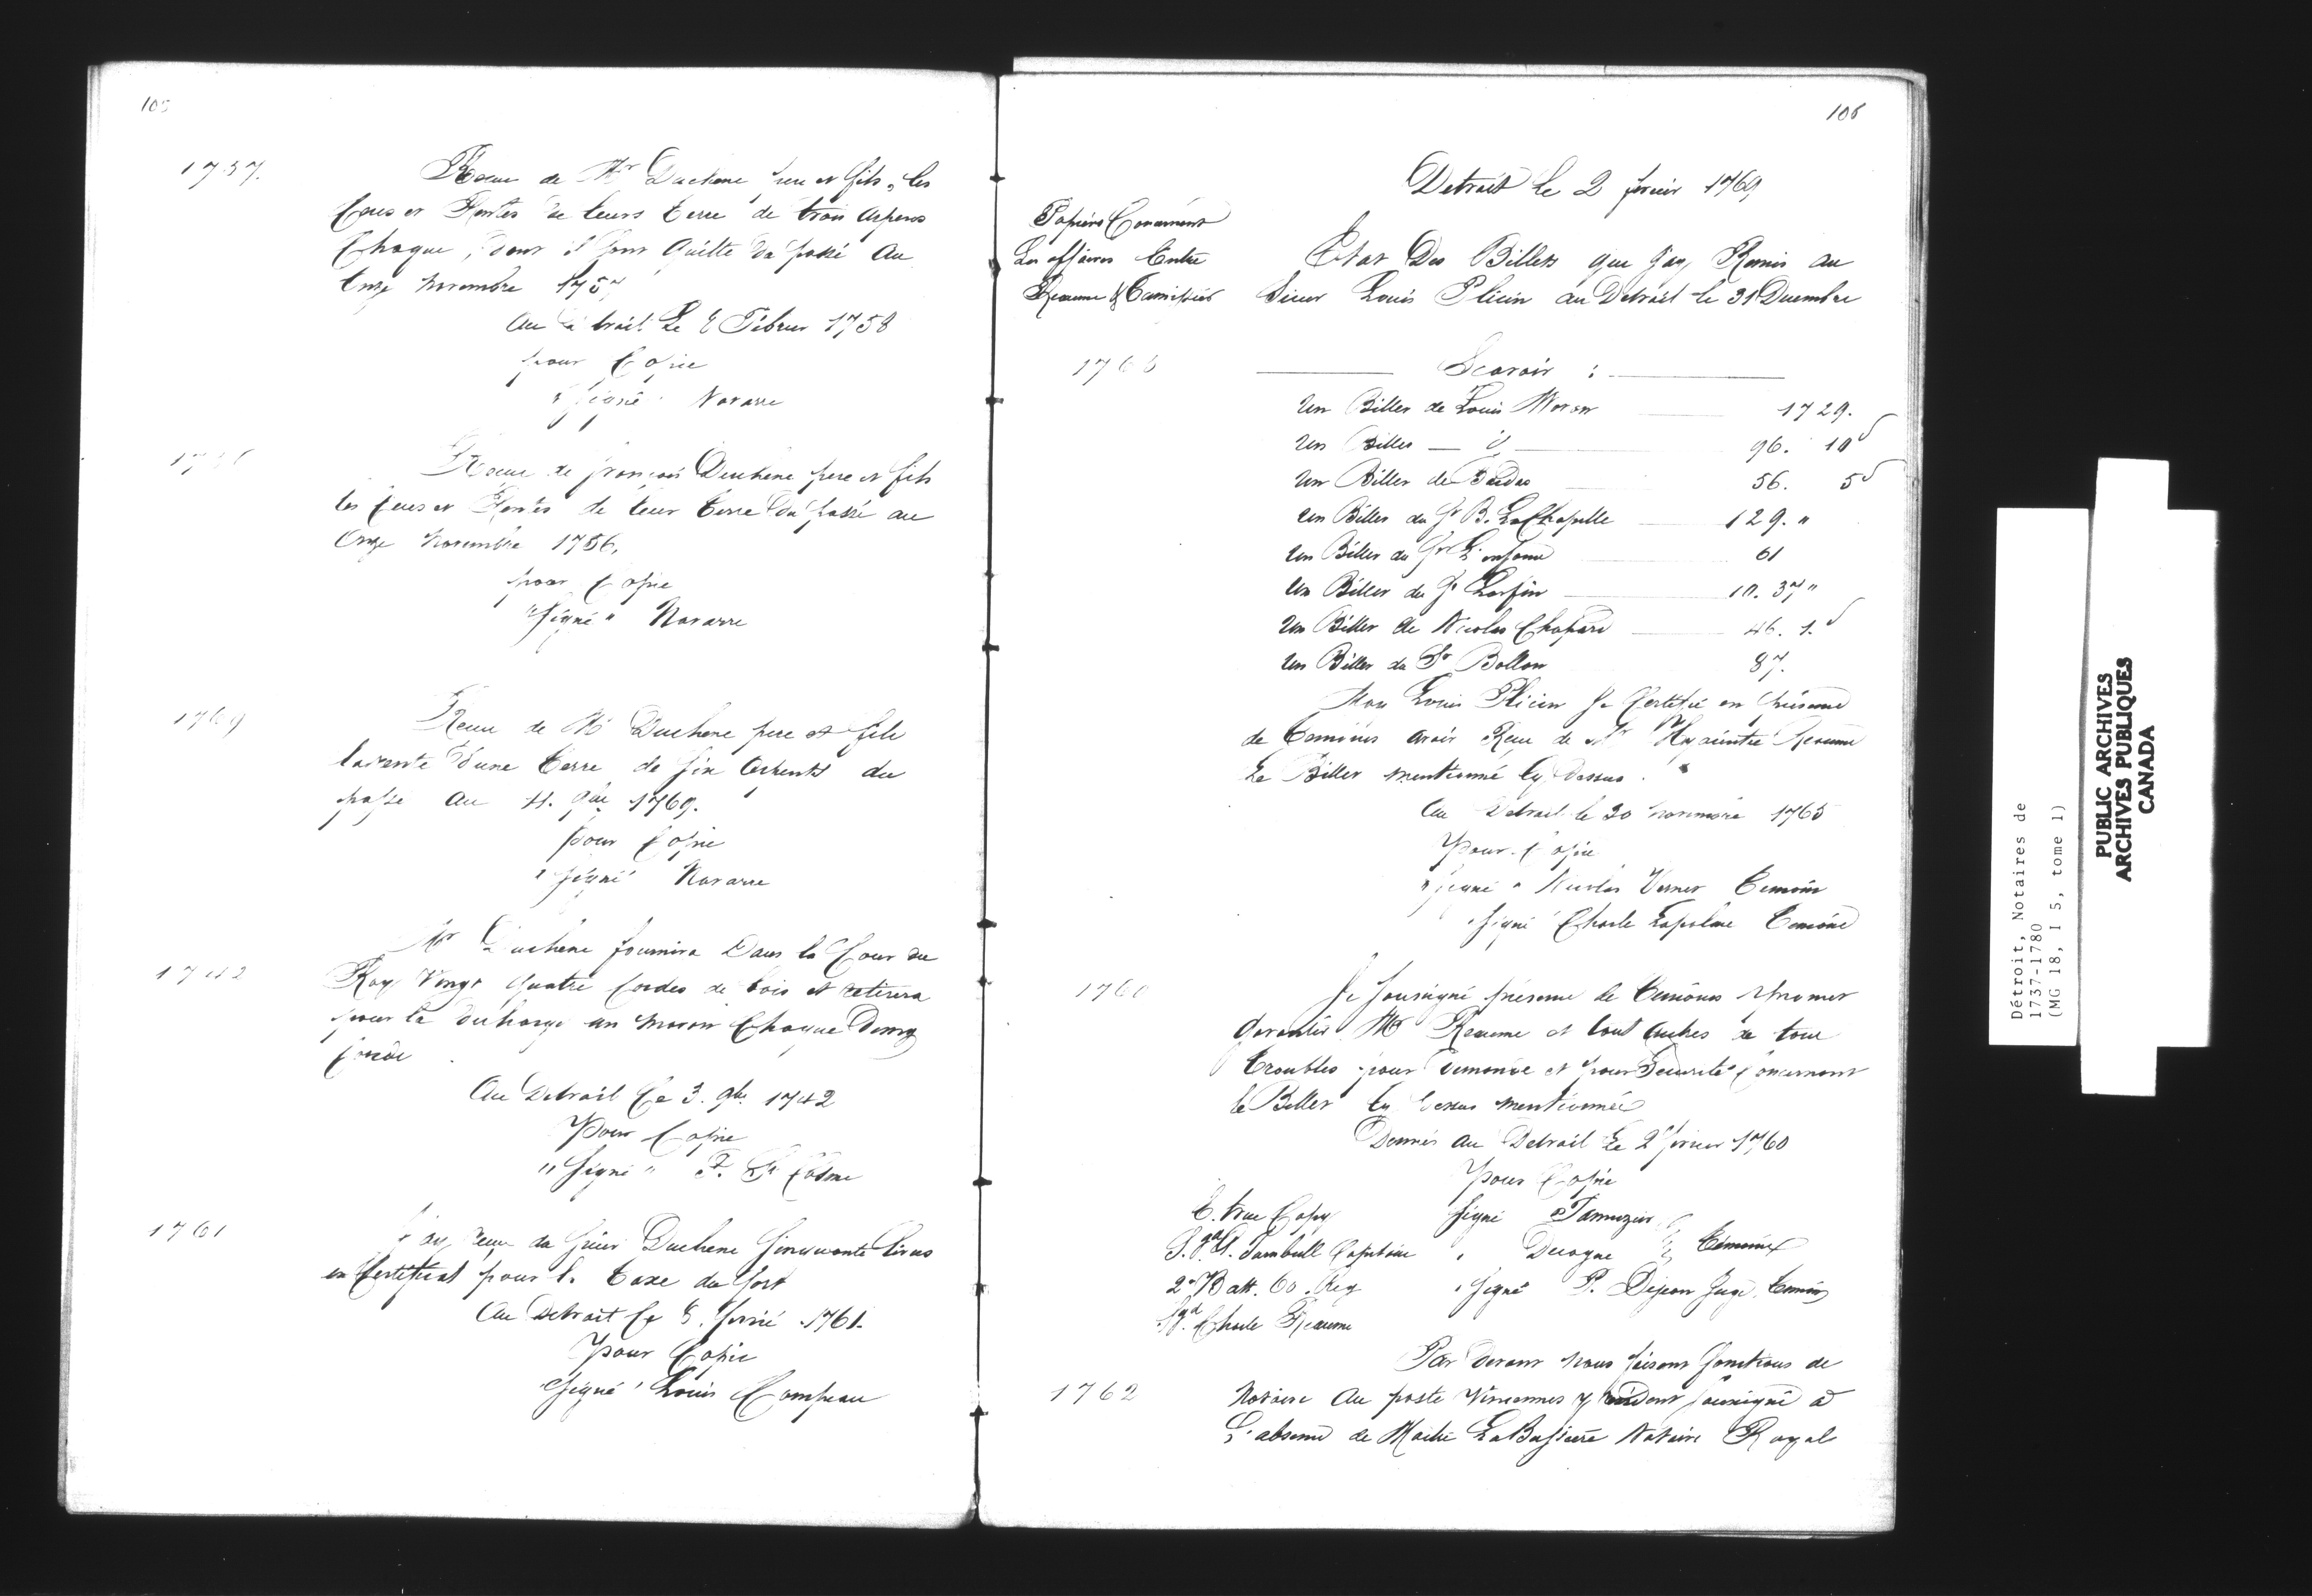 105
1757.
Receu de Mr Duchene pere et fils, les
Cens et Rentes de leurs terre de trois arpens
Chaque, dont il sont Quitte du passé Au
Onze Novembre 1757
Au Détroit Le 8 Février 1758
pour Copie
"signé" Navarre
1756
Receu de françois Duchene pere et fils
les Cens et Rentes de leur terre du passé au
Onze Novembre 1756,
pour Copie
"signé" Navarre
1769
Receu de Mr Duchene pere et fils
la rente d'une terre de six arpents du
passé au 11. 9bre 1769.
pour Copie
"signé" Navarre
Mr Duchene fournira Dans la Cour du
1742
Roy Vingt quatre Cordes de bois et retirera
pour la décharge un Chaque Demy
Corde
Au Détroit Ce 3. 9bre 1742
Pour Copie
"signé" F. St Cosme
1761
J'ay receu du sieur Duchene livres
en Certificat pour la taxe du fort
Au Détroit Ce 1761.
Pour Copie
"signé" Louis Campeau
106
Detroit le 2 fevrier 1769
Papiers Concernant
Les affaires Entre
Reaume &
Etat Des Billets que J'ay Remis au
Sieur Louis au Detroit le 31 Decembre
176
Scavoir :
Un Billet de Louis Moran 1729.
Un Billet — d 96. 10s
Un Billet de 56. 5s
Un Billet du Sr B. LaChapelle 129. "
Un Billet du Sr 61
Un Billet du Sr 10. 37 "
Un Billet de Nicolas Chapard 46. 1.s
Un Billet du Sr Bollon 87.
Moy Louis Je Certifie en présence
de temoins avoir Receu de Mr Hyacinthe Reaume
Le Billet mentionné Cy Dessus.
Au Detroit le 30 novembre 1765
Pour Copie
"signé" Nicolas Temoin
"signé" Charle Temoins
1760
Je soussigné présence de temoins promet
garantir Mr Reaume et tout autres de tout
troubles pour demande et pour Sécurité Concernant
le Billet Cy dessus mentionnée
Donnés au Detroit Le 2 fevrier 1760
Pour Copie
C. true Copy signé
S.gd G. Turnbull Capitaine " Decogne Témoins
2nd Batt. 60. Reg "signé" P. Dejean Juge, temoin
Sgd. Charle Reaume
Par devant nous faisant fonctions de
1762
Notaire Au poste Vincennes y résident soussigné à
L'absence de Maitre LaBussiere Notaire Royal
Détroit, Notaires de
1737-1780
(MG 18, I 5, tome 1)
PUBLIC ARCHIVES
ARCHIVES PUBLIQUES
CANADA